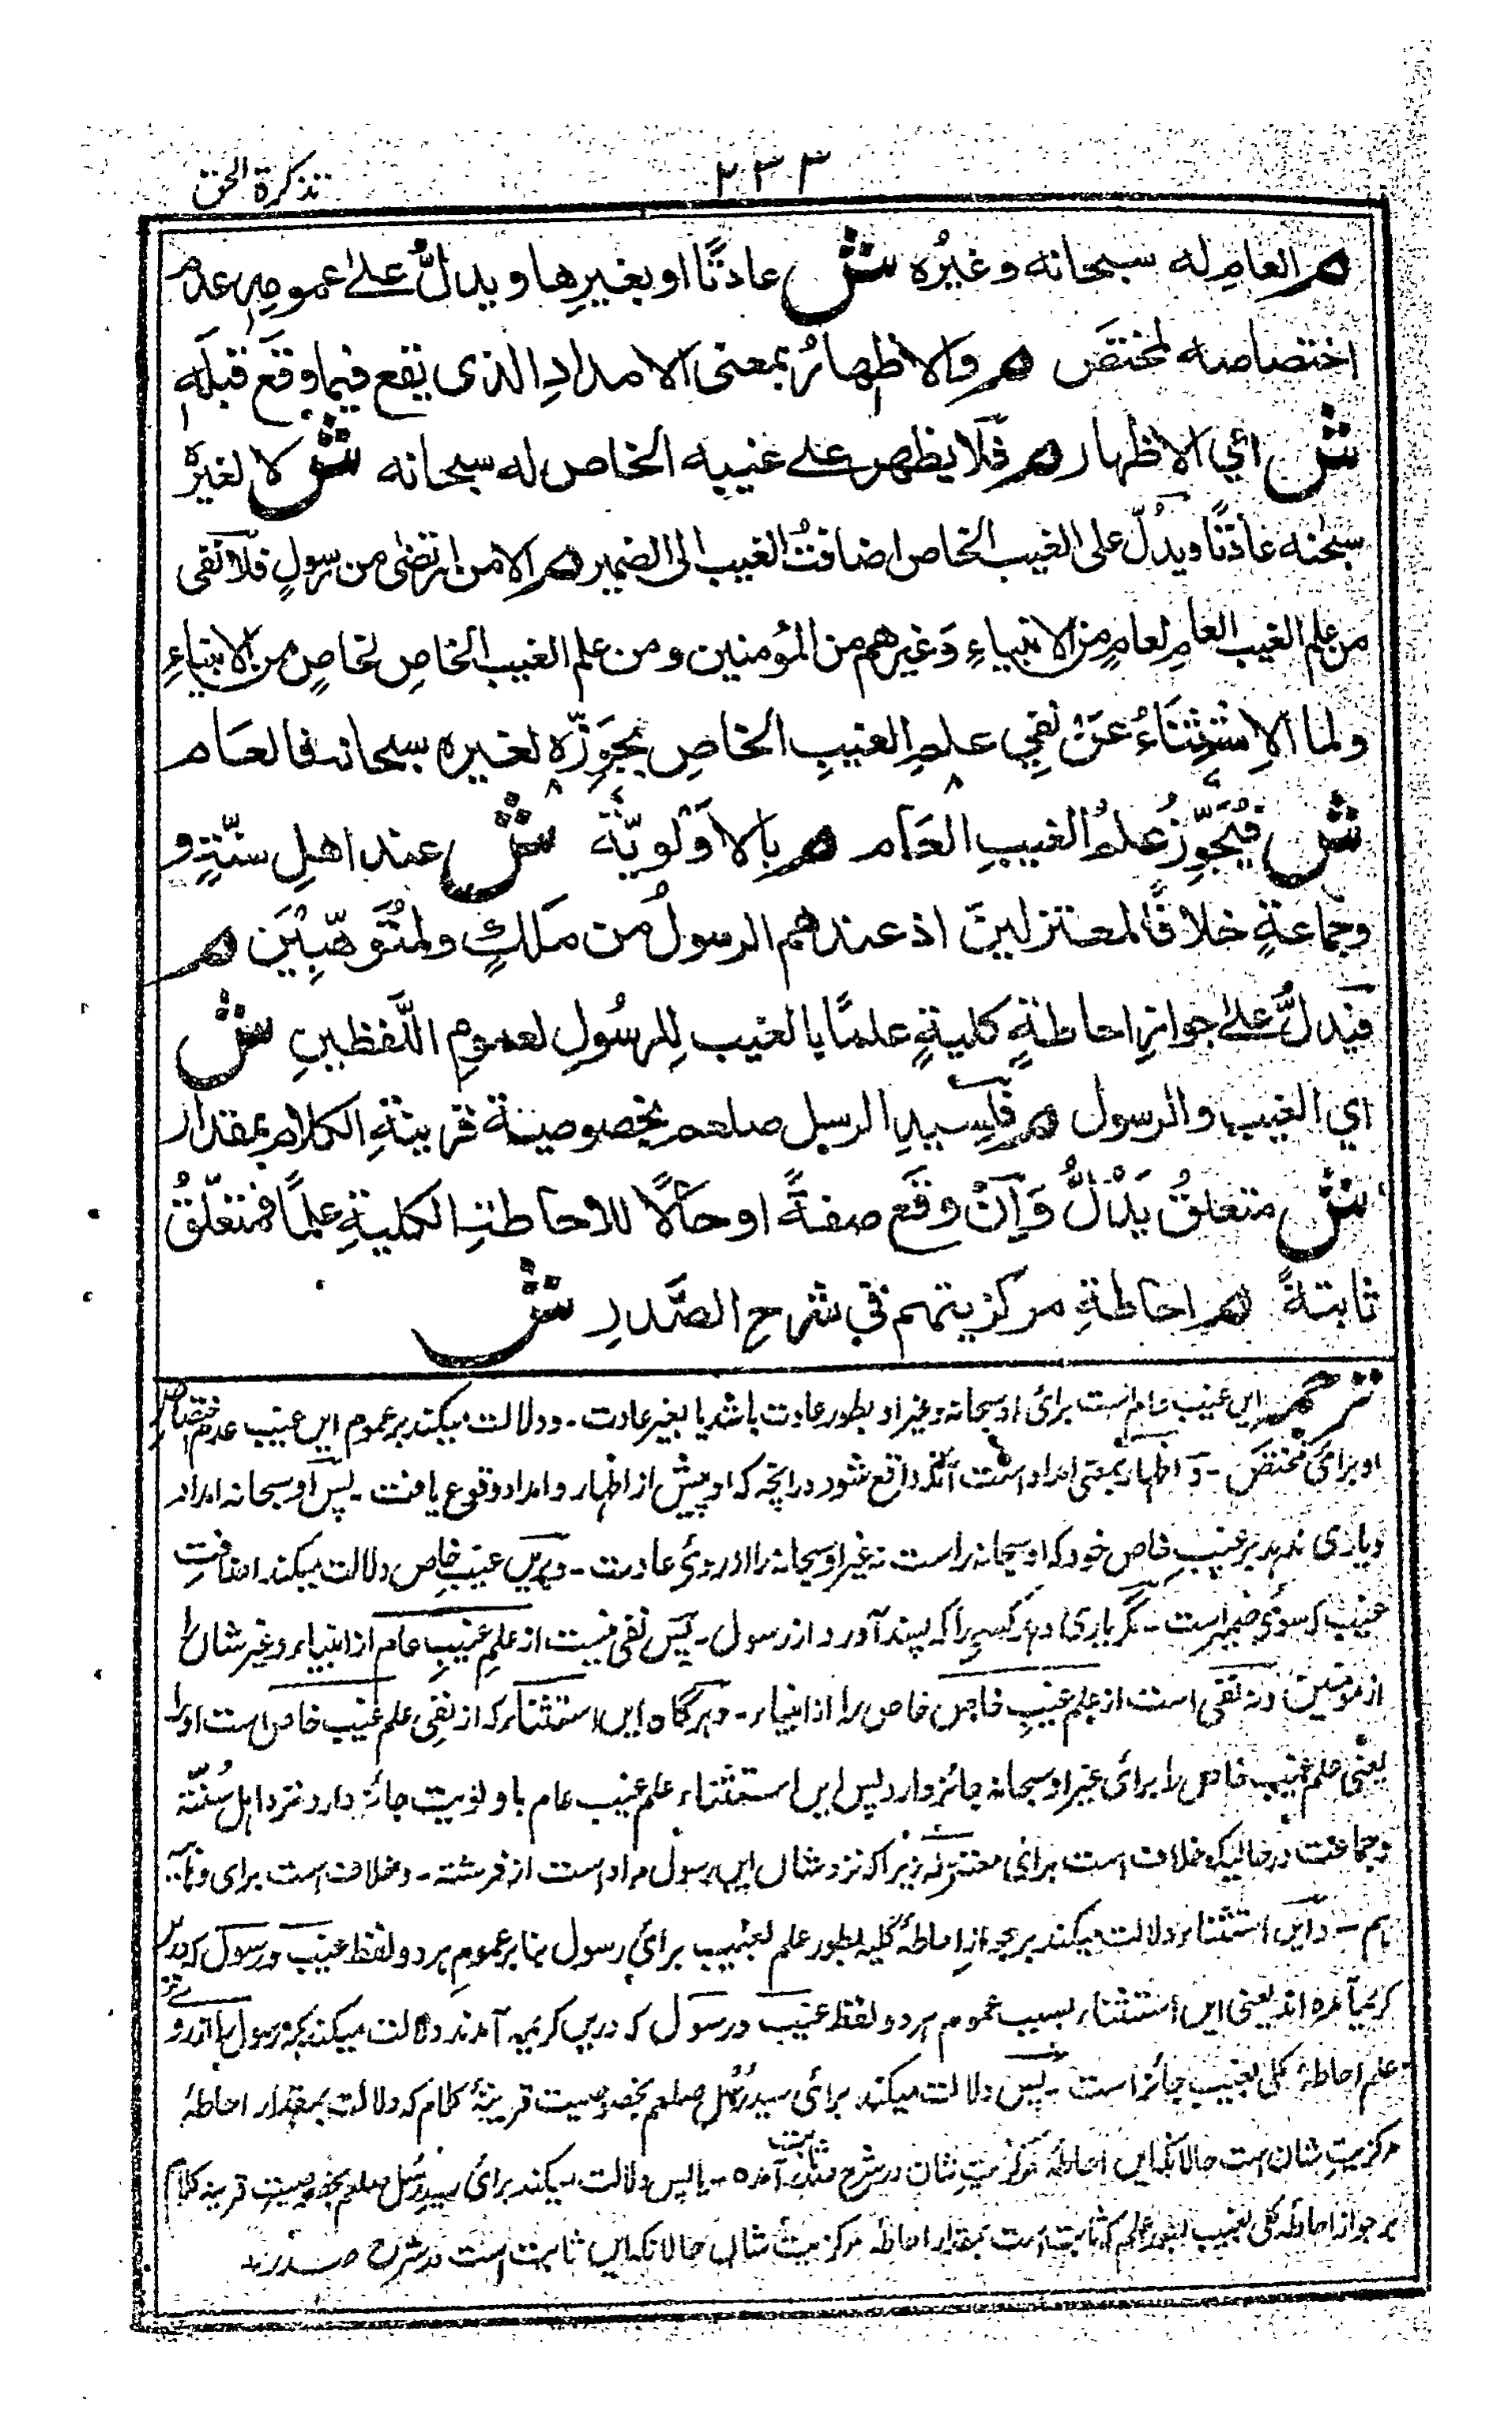 ٢٣٣
تذكرة الحق
م العام له سبحانه وغيرُه ش عادتًا او بغيرِها ويدلُّ على عمومِه عدم
اختصاصه لمختصَ م والاظهارُ بمعنى الامدادِ الذى يقع فيما وقَع قبلَه
ش اي الاظهار م فَلا يظهر على غيبه الخاص له سبحانه ش لا لغيرَه
سبحنه عادتًا ويدُلّ على الغيب الخاص اضافتُ الغيب الى الضمير م الا من ارتضى من رسولٍ فلا نفى
من علم الغيب العامِ لعامٍ من الانبياءِ وَغيرهم من المُومنين ومن علم الغيب الخاصِ لخاصٍ من الانبياءِ
ولما الاِستثناءُ عَنْ نفيِ علمِ الغيبِ الخاصِ يجَوِّزه لغيره سبحانه فالعَام
ش فيُجَوِّزُ علمُ الغيبِ العَام م بالاَولويّة ش عند اهلِ سنّتٍ و
وجماعةٍ خلافًا لمعتزلينَ اذ عندهم الرسولُ من مَلكٍ ولمتُوهّبِيْنَ م
فيَدلُّ على جوازِ احاطةٍ كليةٍ علمًا بالغيب لِلرسُولِ لعمومِ اللّفظينِ ش
اي الغيب والرسول م فلِسيدِ الرسل صلعم بخصوصية قرينةِ الكلام بمقدار
ش متعلقُ يَدْلُّ وَاِنْ وقَع صفةً او حَالًا للاحاطتِ الكليةِ علمًا فمتعلّقُ
ثابتةً م احاطةِ مركزيتهم فی شرحِ الصَّدرِ ش
ترجمہ ایں غیب عام است برائ او سبحانہ وغیر او بطور عادت باشد یا بغیر عادت ـ ودلالت میکند بر عموم ایں غیب عدم اختصاص
او برائ مختص ـ و اظہار بمعنی امداد است آنکہ واقع شود در آنچہ کہ او پیش از اظہار و امداد وقوع یافت ـ پس او سبحانہ امداد
ویاری ندہد بر غیبِ خاص خود کہ او سبحانہ راست نہ غیر او سبحانہ را از روئ عادت ـ وبریں غیبِ خاص دلالت میکند اضافتِ
غیب کہ سوئ ضمیر است ـ مگر یاری دہد کسیرا کہ پسند آورد از رسول ـ پس نفی نیست از علمِ غیبِ عام از انبیاء وغیر شاں را
از مومنین ونہ نفی است از علم غیبِ خاص خاص را از انبیاء ـ وہرگاہ ایں استثناء کہ از نفیِ علم غیب خاص است او را
یعنی علم غیب خاص را برائ غیر او سبحانہ جائز دارد پس ایں استثناء علم غیب عام باولویت جائز دارد نزد اہل سُنّتہ
وجماعت درحالیکہ خلاف است برای معتزلہ زیرا کہ نزد شاں ایں رسول مراد است از فرشتہ ـ وخلاف است برای وہابیہ
ہم ـ و ایں استثناء دلالت میکند بر جواز احاطۂ کلیہ بطور علم بغیب برائ رسول بنا بر عموم ہر دو لفظ غیب ورسول کہ دریں
کریمہ آمدہ اند یعنی ایں استثناء بسبب عموم ہر دو لفظ غیب ورسول کہ دریں کریمہ آمدند دلالت میکند کہ رسول را از روئے
علم احاطۂ کلی بغیب جائز است ـ پس دلالت میکند برائ سید رسل صلعم بخصوصیت قرینۂ کلام کہ دلالت بمقدار احاطۂ
مرکزیتِ شان است حالانکہ ایں احاطۂ مرکزیتِ شان در شرح صدر آمدہ ـ یا پس دلالت میکند برائ سید رسل صلعم بخصوصیتِ قرینہ کلام
بر جواز احاطۂ کلی بغیب بطور علم کہ ثابت است بمقدار احاطہ مرکزیت شاں حالانکہ ایں ثابت است در شرح صدر